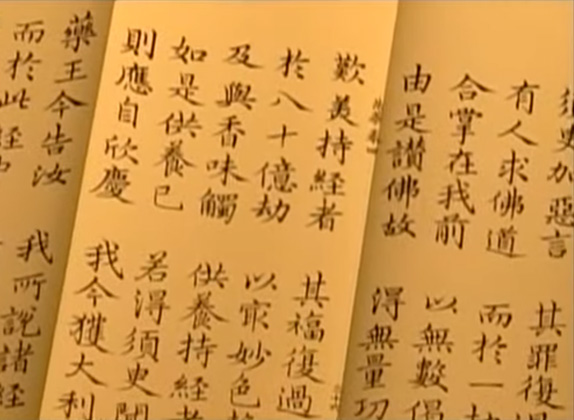 臾加惡言 其罪復過
有人求佛道 而於一
合掌在我前 以無數偈
由是讚佛故 得無量功
歎美持經者 其福復過
於八十億劫 以㝡妙色
及與香味觸 供養持經
如是供養已 若得須臾聞
則應自欣慶 我今獲大利
藥王今告汝 我所說諸經
而於此經